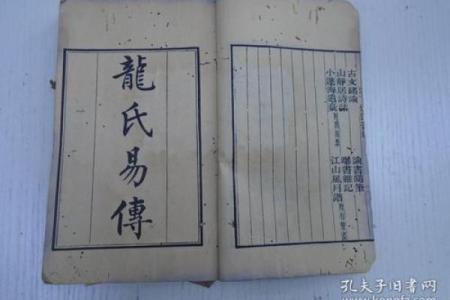 古文緒論　論書隨筆
山靜居詩話　曝書雜記
小蓬海遺　江山風月譜
龍氏易傳
孔夫子旧书网
www.kongfz.com